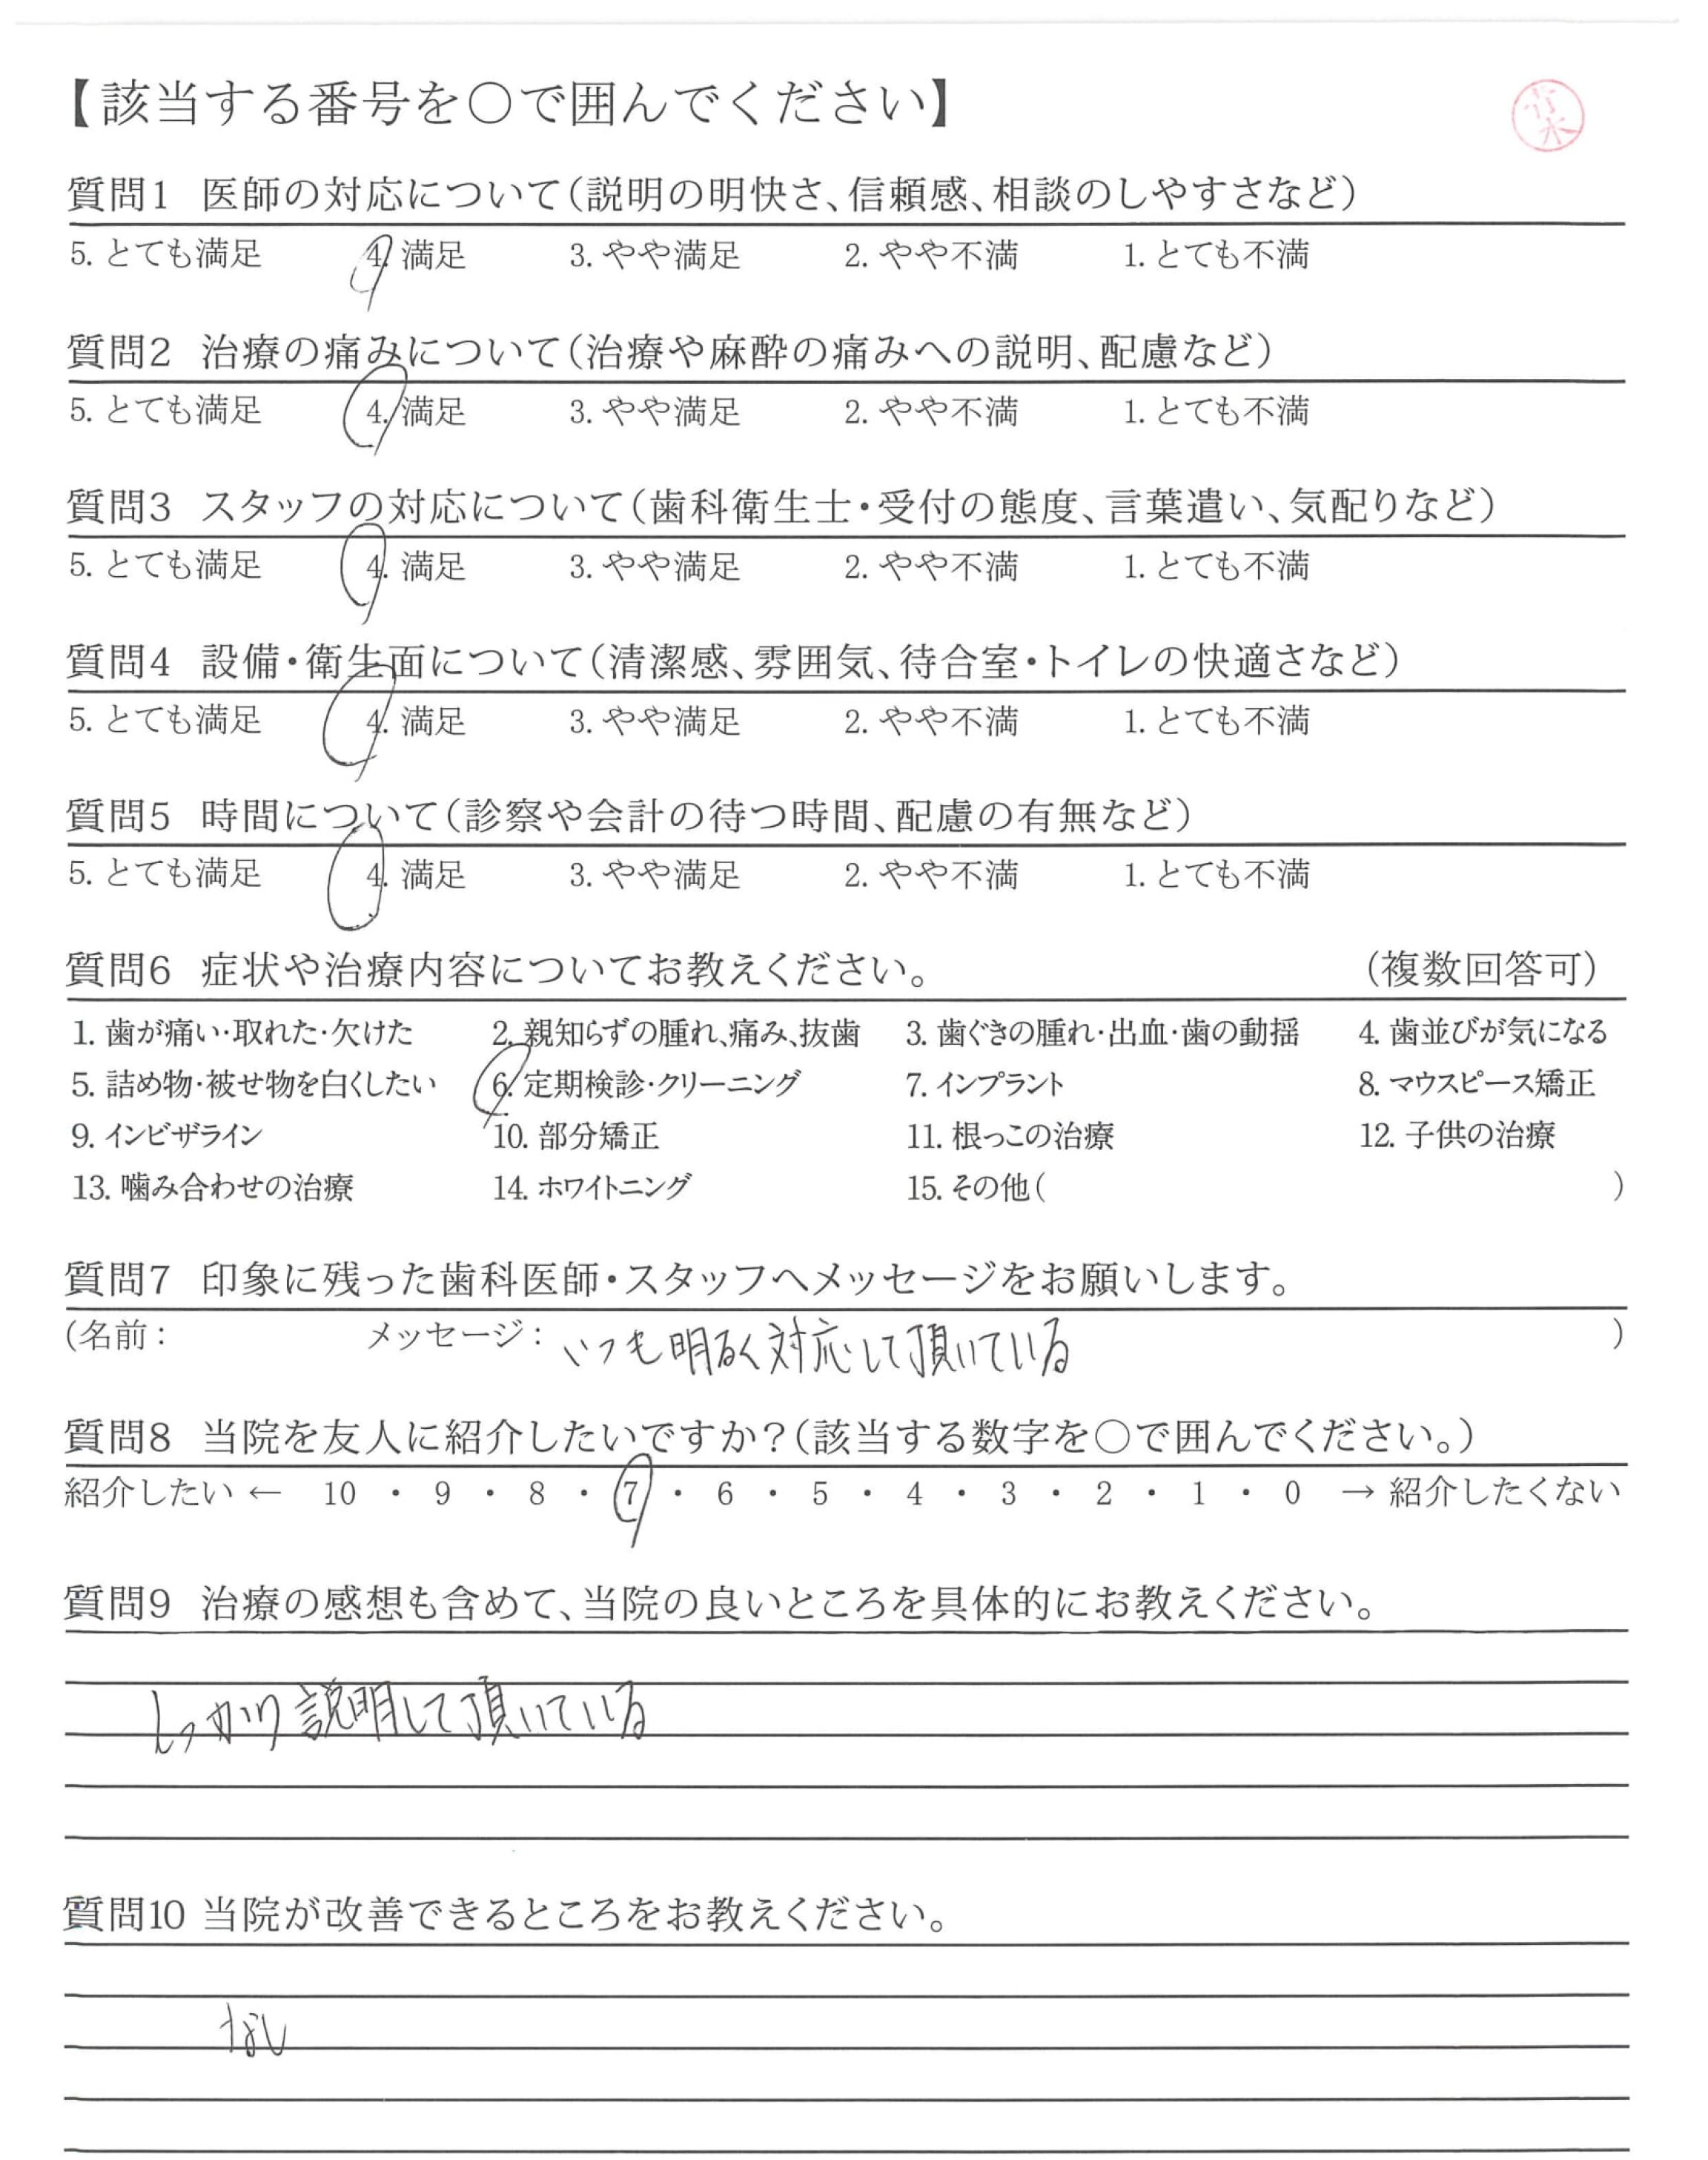 【該当する番号を○で囲んでください】
質問1 医師の対応について(説明の明快さ、信頼感、相談のしやすさなど)
5. とても満足 4. 満足 3. やや満足 2. やや不満 1. とても不満
質問2 治療の痛みについて(治療や麻酔の痛みへの説明、配慮など)
5. とても満足 4. 満足 3. やや満足 2. やや不満 1. とても不満
質問3 スタッフの対応について(歯科衛生士・受付の態度、言葉遣い、気配りなど)
5. とても満足 4. 満足 3. やや満足 2. やや不満 1. とても不満
質問4 設備・衛生面について(清潔感、雰囲気、待合室・トイレの快適さなど)
5. とても満足 4. 満足 3. やや満足 2. やや不満 1. とても不満
質問5 時間について(診察や会計の待つ時間、配慮の有無など)
5. とても満足 4. 満足 3. やや満足 2. やや不満 1. とても不満
質問6 症状や治療内容についてお教えください。 (複数回答可)
1. 歯が痛い・取れた・欠けた 2. 親知らずの腫れ、痛み、抜歯 3. 歯ぐきの腫れ・出血・歯の動揺 4. 歯並びが気になる
5. 詰め物・被せ物を白くしたい 6. 定期検診・クリーニング 7. インプラント 8. マウスピース矯正
9. インビザライン 10. 部分矯正 11. 根っこの治療 12. 子供の治療
13. 噛み合わせの治療 14. ホワイトニング 15. その他( )
質問7 印象に残った歯科医師・スタッフへメッセージをお願いします。
(名前: メッセージ: いつも明るく対応して頂いている )
質問8 当院を友人に紹介したいですか?(該当する数字を○で囲んでください。)
紹介したい ← 10 ・ 9 ・ 8 ・ 7 ・ 6 ・ 5 ・ 4 ・ 3 ・ 2 ・ 1 ・ 0 → 紹介したくない
質問9 治療の感想も含めて、当院の良いところを具体的にお教えください。
しっかり説明して頂いている
質問10 当院が改善できるところをお教えください。
なし